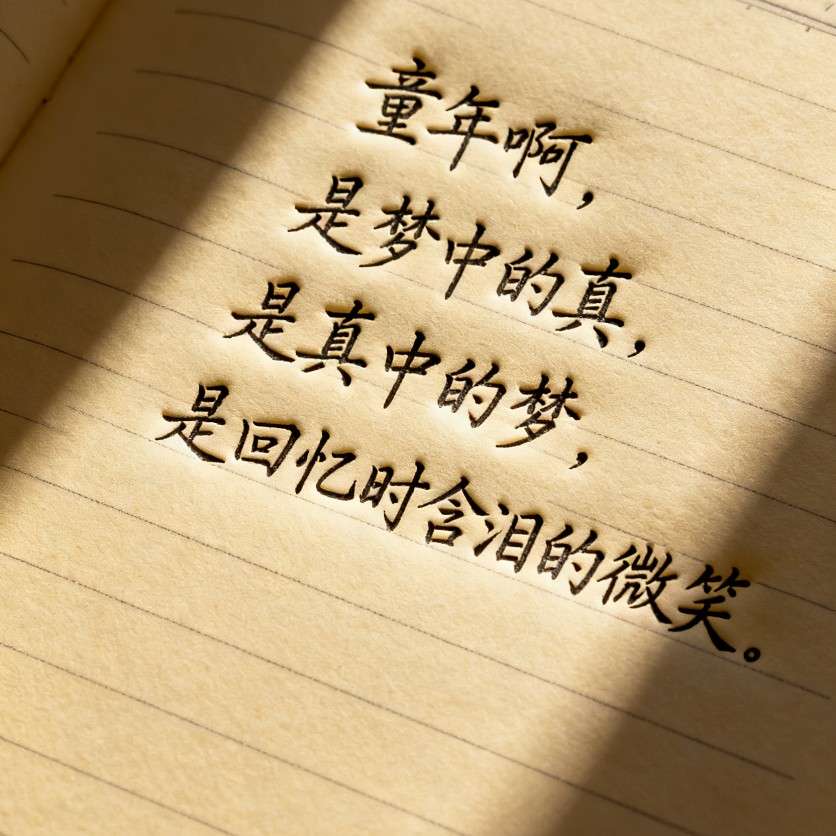 童年啊，
是梦中的真，
是真中的梦，
是回忆时含泪的微笑。